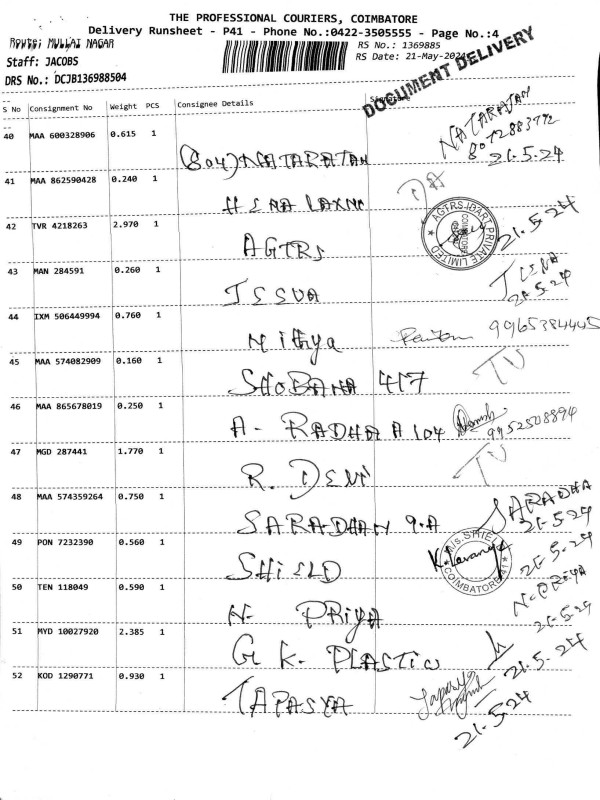 THE PROFESSIONAL COURIERS, COIMBATORE
Delivery Runsheet - P41 - Phone No.:0422-3505555 - Page No.:4
Route: MULLAI NAGAR
RS No.: 1369885
Staff: JACOBS
RS Date: 21-May-2024
DRS No.: DCJB136988504
DOCUMENT DELIVERY
S No Consignment No Weight PCS Consignee Details Signature
40 MAA 600328906 0.615 1 (804) NATARATAN NATARAJAN
8072883792
21.5.24
41 MAA 862590428 0.240 1 HEMA LAXMI DA
42 TVR 4218263 2.970 1 AGTRS 21.5.24
AGTRS-IDART PRIVATE LIMITED
COIMBATORE
43 MAN 284591 0.260 1 JESUA JEENA
21.5.24
44 IXM 506449994 0.760 1 Nithya 9965384445
45 MAA 574082909 0.160 1 SHOBANA 417 TV
46 MAA 865678019 0.250 1 A- RADHA A 104 9952508894
47 MGD 287441 1.770 1 R. DEVI TV
48 MAA 574359264 0.750 1 SARADHAN 9.A SARADHA
21.5.24
49 PON 7232390 0.560 1 SHIELD K. Lavanya 21.5.24
M/s. SHIELD
COIMBATORE-41
50 TEN 118049 0.590 1 N- PRIYA N-PRIYA
21.5.24
51 MYD 10027920 2.385 1 G K- PLASTIC 21.5.24
52 KOD 1290771 0.930 1 TAPASYA
21.5.24